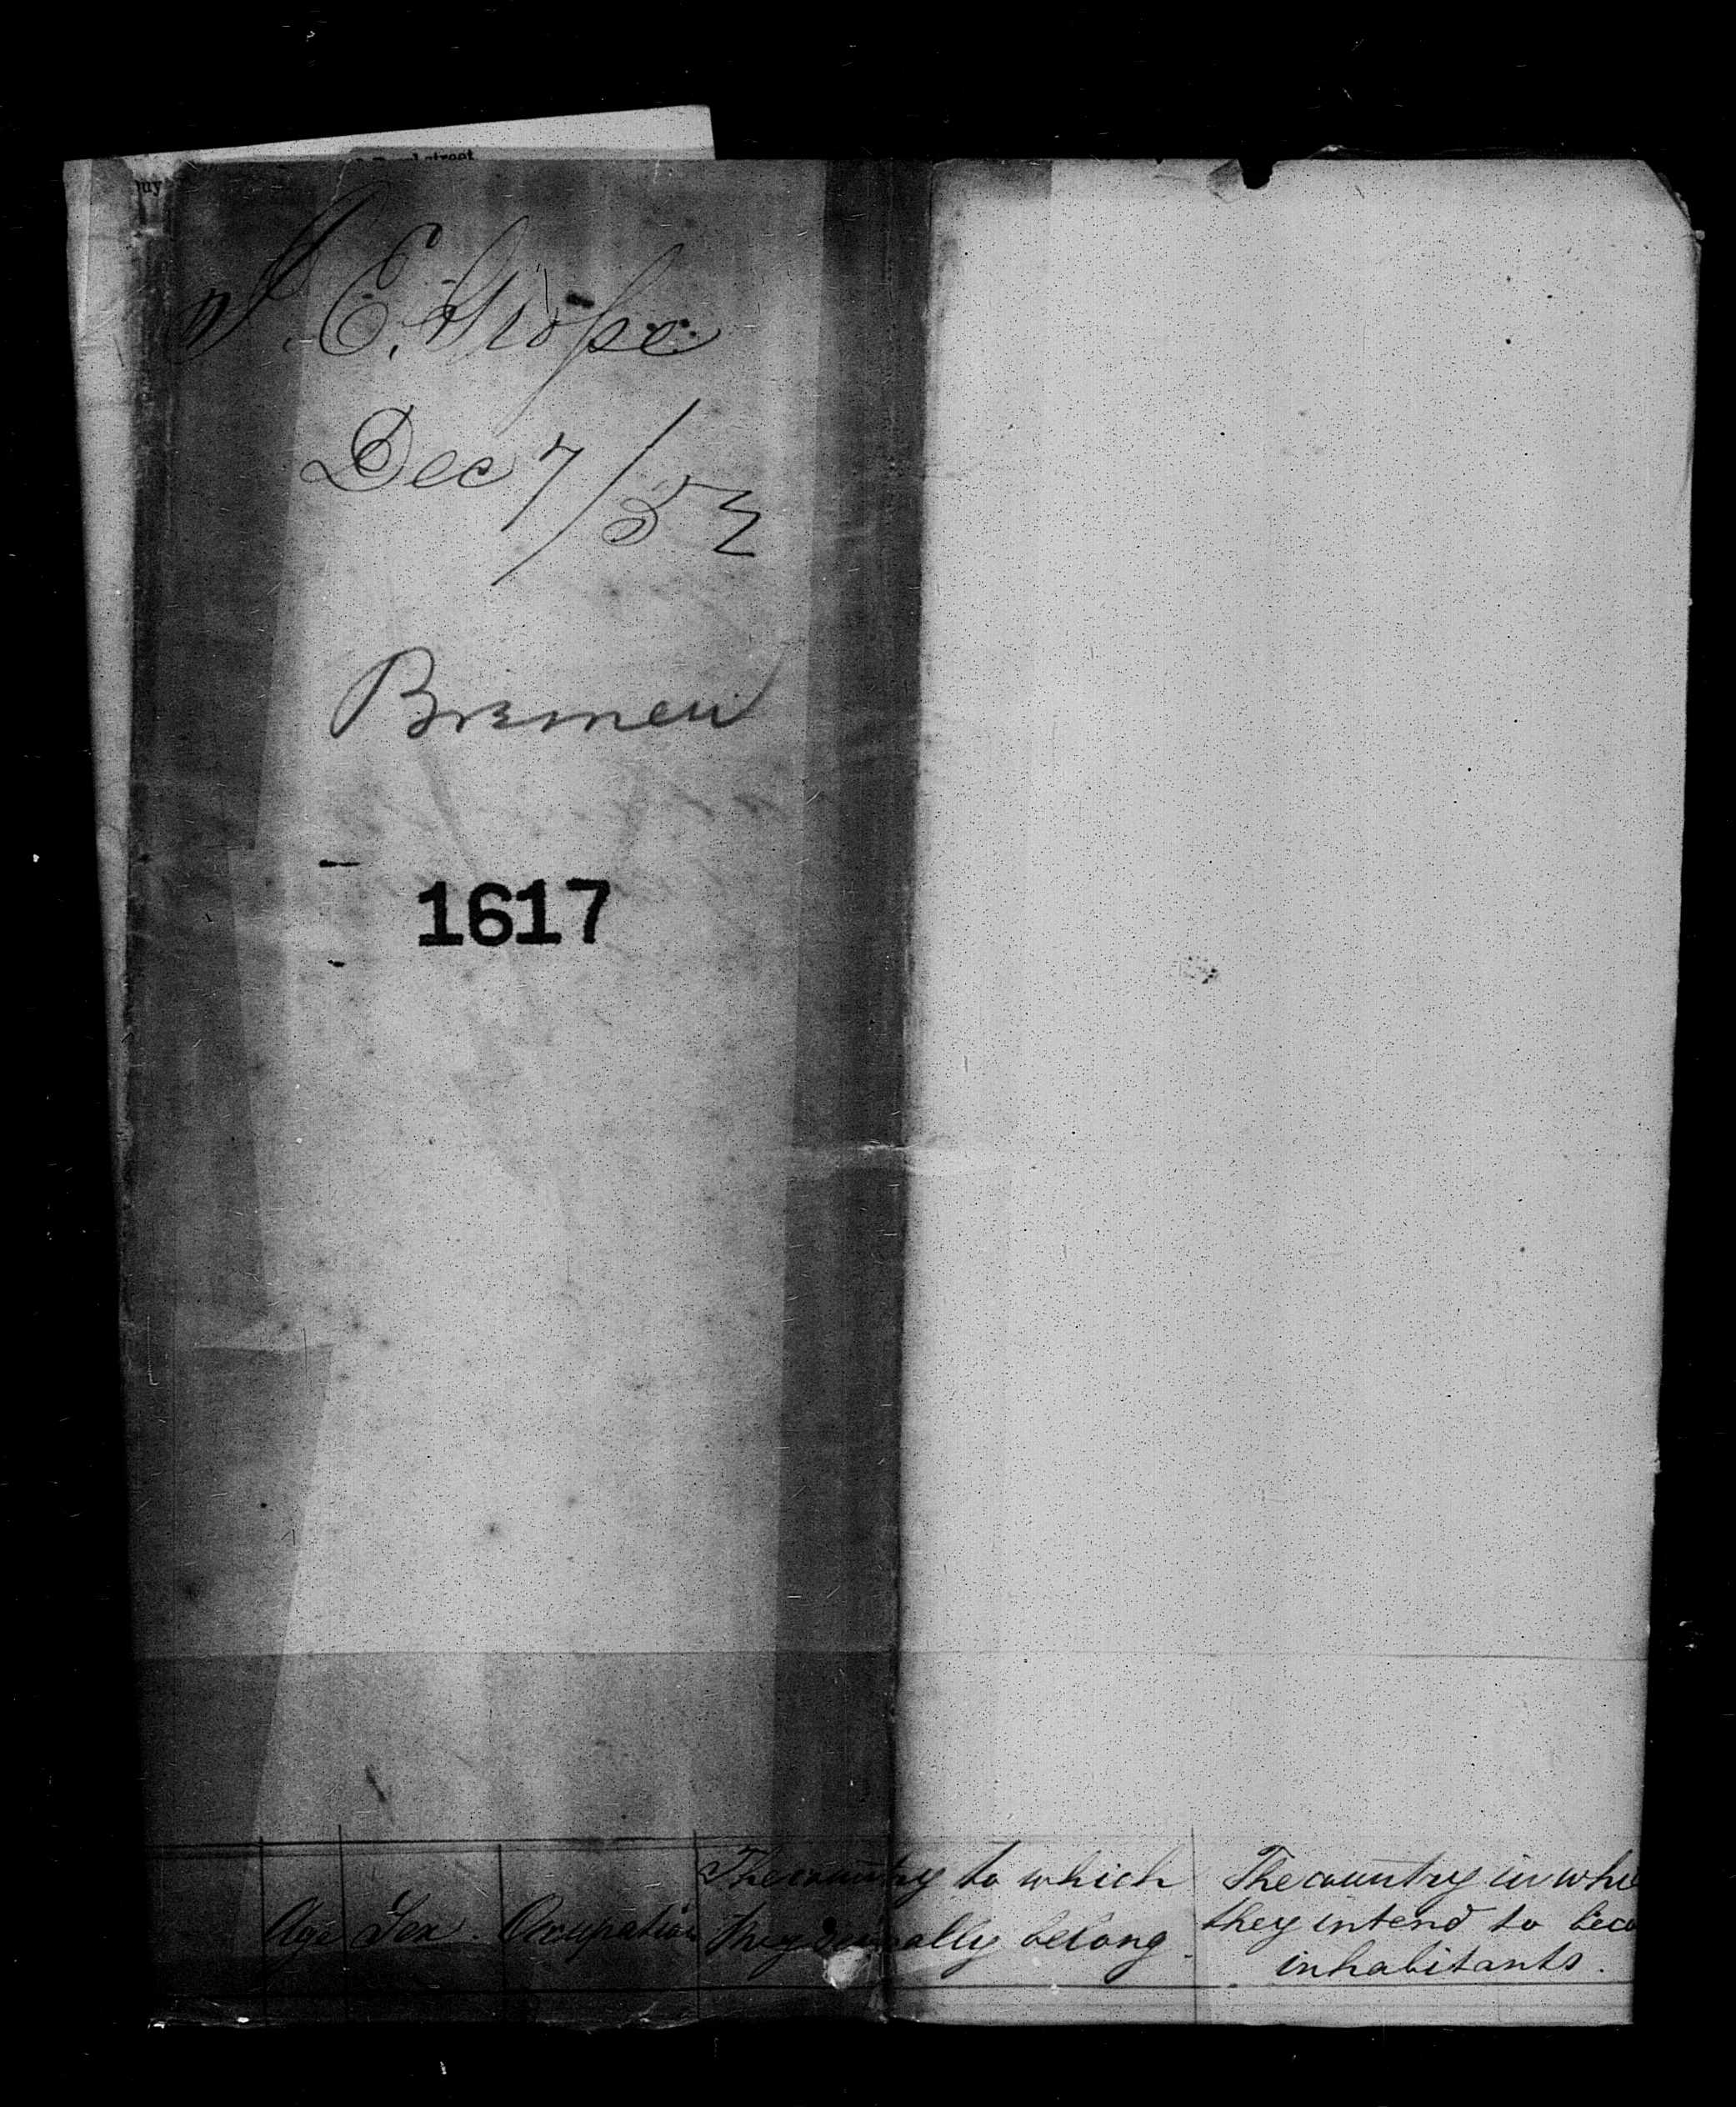 street
J. E. Grosse
Dec 7/52
Bremen
1617
Age Sex. Occupation The country to which they severally belong. The country in whi they intend to beco inhabitants.